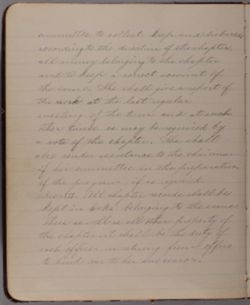 committee to collect, keep and disburse
according to the direction of the chapter
all money belonging to the chapter
and to keep a correct account of
the same. She shall give a report of
the work at the last regular
meeting of the term and at such
other times as may be required by
a vote of the chapter. She shall
also render assistance to the chairman
of her committee in the preparation
of the program, if so required.
All chapter records shall be
kept in books belonging to the
property of
the chapter it shall be the duty of
each officer in retiring from office
to hand over to her successor.